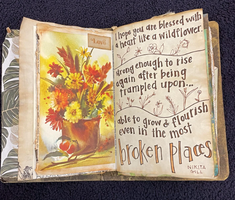 I hope you are blessed with
a heart like a wildflower.
strong enough to rise
again after being
trampled upon...
able to grow & flourish
even in the most
broken places
NIKITA
GILL